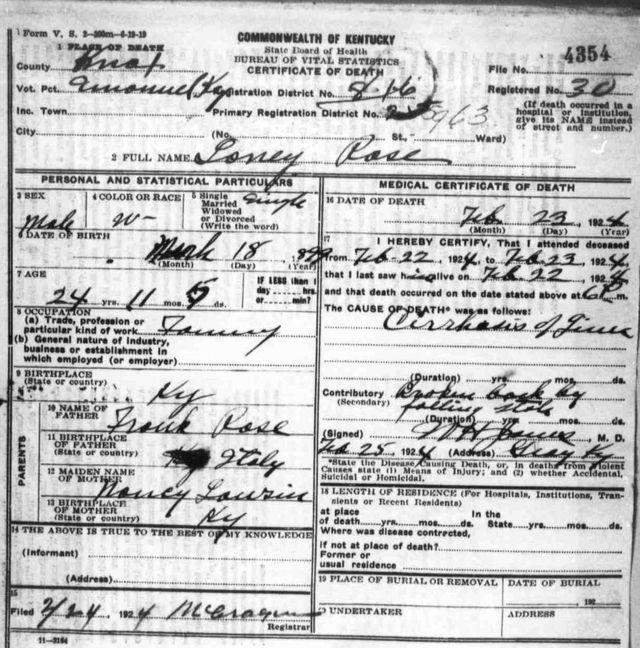 Form V. S. 2-200m-6-19-19
COMMONWEALTH OF KENTUCKY
State Board of Health
BUREAU OF VITAL STATISTICS
CERTIFICATE OF DEATH
1 PLACE OF DEATH
County Knox
File No. 4354
Vot. Pct. Emanuel Ky Registration District No. 816
Registered No. 30
Inc. Town Primary Registration District No. 5963
(If death occurred in a hospital or institution, give its NAME instead of street and number.)
City (No. St., Ward)
2 FULL NAME Loney Rose
PERSONAL AND STATISTICAL PARTICULARS
3 SEX Male
4 COLOR OR RACE W
5 Single Married Widowed or Divorced (Write the word) Single
6 DATE OF BIRTH
March 18 1899
(Month) (Day) (Year)
7 AGE
24 yrs. 11 mos. 5 ds.
IF LESS than 1 day hrs. or min?
8 OCCUPATION
(a) Trade, profession or particular kind of work
(b) General nature of industry, business or establishment in which employed (or employer)
9 BIRTHPLACE
(State or country) Ky
PARENTS
10 NAME OF FATHER Frank Rose
11 BIRTHPLACE OF FATHER (State or country) Italy
12 MAIDEN NAME OF MOTHER Nancy
13 BIRTHPLACE OF MOTHER (State or country) Ky
14 THE ABOVE IS TRUE TO THE BEST OF MY KNOWLEDGE
(Informant)
(Address)
15
Filed 2/24, 1924
Registrar
11-3184
MEDICAL CERTIFICATE OF DEATH
16 DATE OF DEATH
Feb. 23, 1924
(Month) (Day) (Year)
17 I HEREBY CERTIFY, That I attended deceased
from Feb 22, 1924, to Feb 23, 1924,
that I last saw him alive on Feb 22, 1924,
and that death occurred on the date stated above at 6 m.
The CAUSE OF DEATH* was as follows:
Cirrhosis of Liver
(Duration) yrs. mos. ds.
Contributory Broken back by
(Secondary) falling slate
(Duration) yrs. mos. ds.
(Signed) M. D.
Feb 25, 1924 (Address) Gray Ky
*State the Disease Causing Death, or, in deaths from Violent Causes state (1) Means of Injury; and (2) whether Accidental, Suicidal or Homicidal.
18 LENGTH OF RESIDENCE (For Hospitals, Institutions, Transients or Recent Residents)
at place of death yrs. mos. ds. In the State yrs. mos. ds.
Where was disease contracted,
if not at place of death?
Former or usual residence
19 PLACE OF BURIAL OR REMOVAL
DATE OF BURIAL
192
UNDERTAKER
ADDRESS